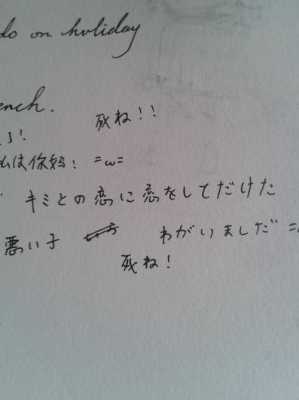 do on holiday
ench.
死ね！！
你妈！ =ω=
キミとの恋に恋をしてだけた
悪い子 わがりましだ =
死ね！